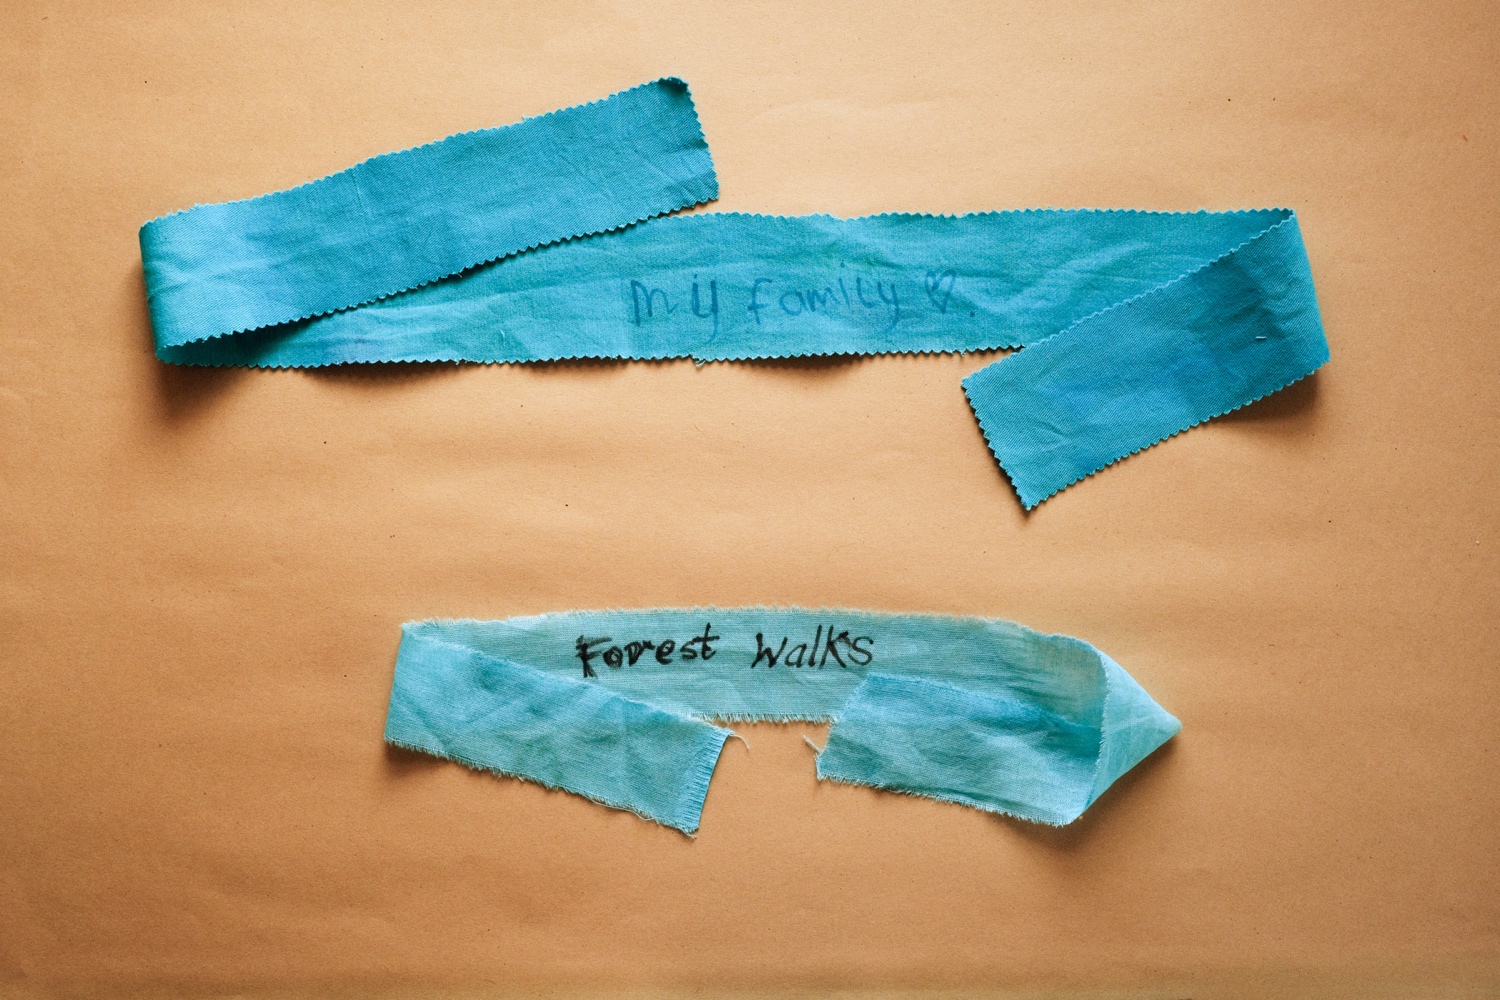 my family ♡.
Forest Walks